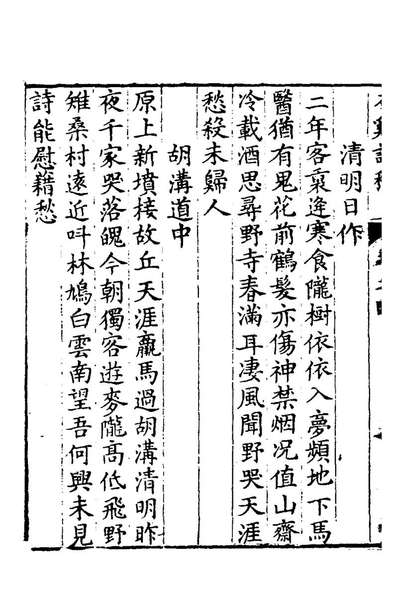 清明日作
二年客裏逢寒食隴樹依依入夢頻地下馬
醫猶有鬼花前鶴髮亦傷神禁烟况值山齋
冷載酒思尋野寺春滿耳凄風聞野哭天涯
愁殺未歸人
胡溝道中
原上新墳接故丘天涯羸馬過胡溝清明昨
夜千家哭落魄今朝獨客遊麥隴高低飛野
雉桑村遠近呌林鳩白雲南望吾何興未見
詩能慰藉愁